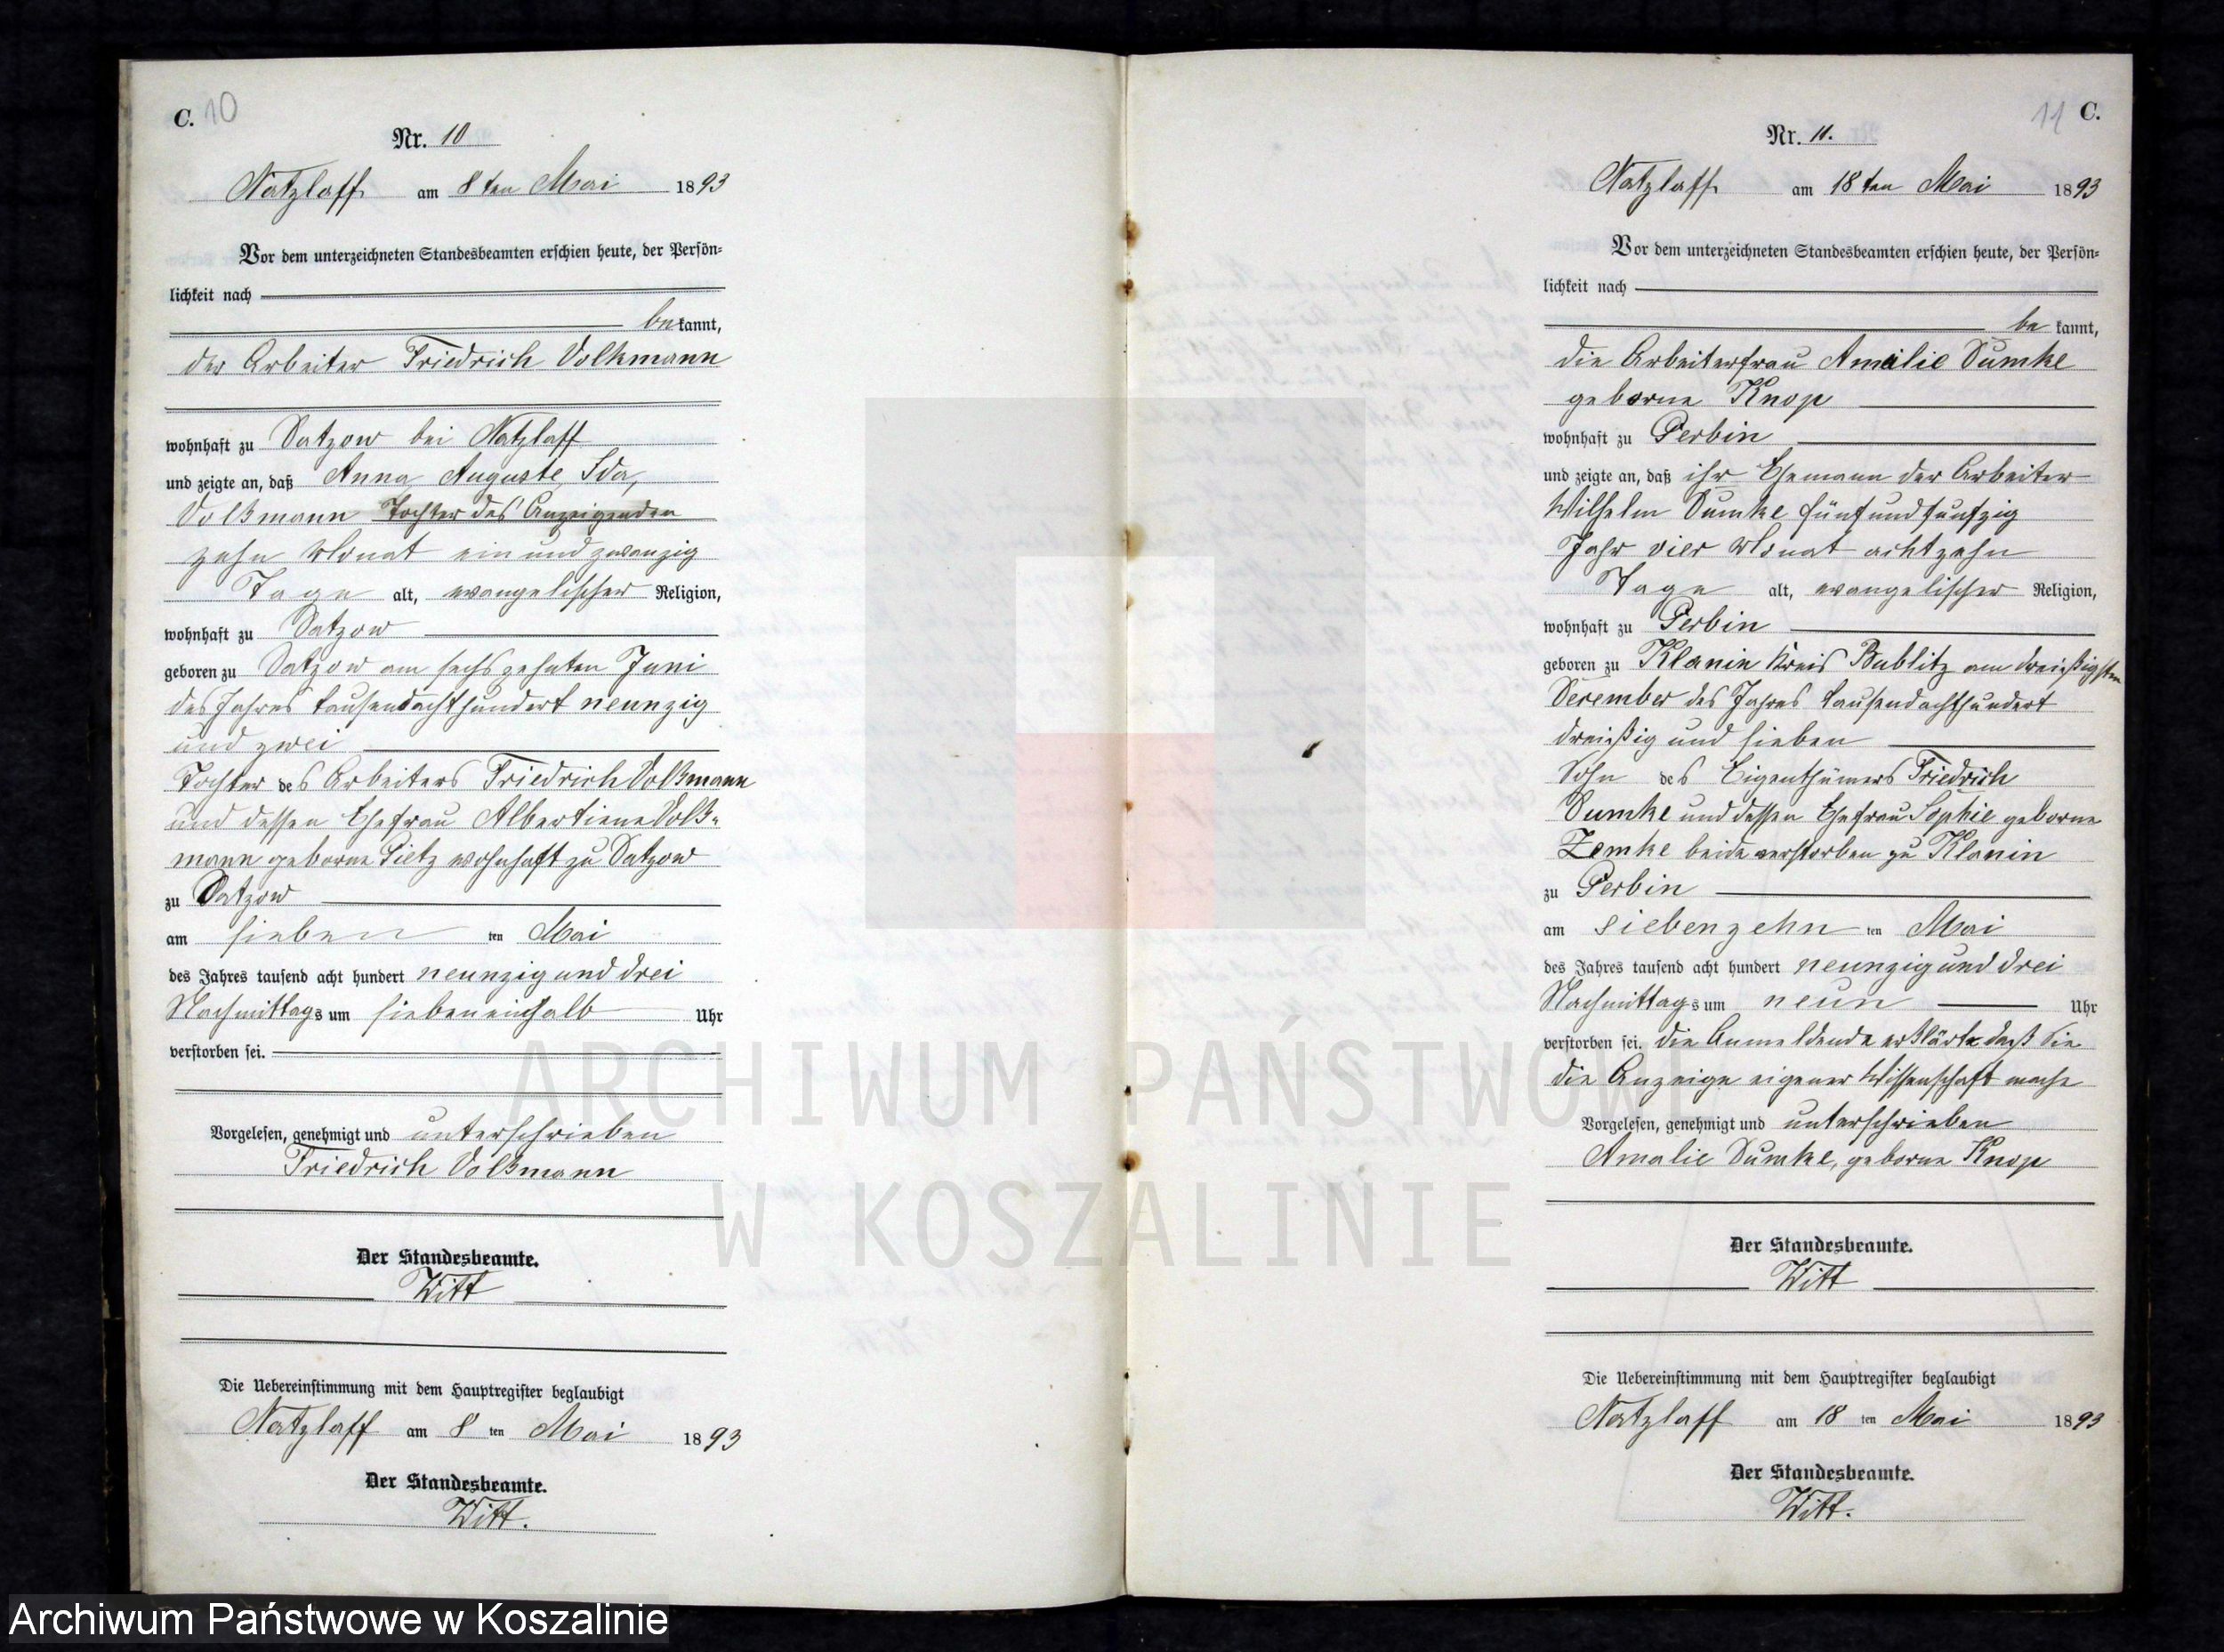 C. 10
Nr. 10
Natzlaff am 8 ten Mai 1893
Vor dem unterzeichneten Standesbeamten erschien heute, der Persön-
lichkeit nach
bekannt,
der Arbeiter Friedrich Volkmann
wohnhaft zu Satzow bei Natzlaff
und zeigte an, daß Anna, Auguste, Ida,
Volkmann Tochter des Anzeigenden
zehn Monat ein und zwanzig
Tage alt, evangelischer Religion,
wohnhaft zu Satzow
geboren zu Satzow am sechszehnten Juni
des Jahres tausendachthundert neunzig
und zwei
Tochter des Arbeiters Friedrich Volkmann
und dessen Ehefrau Albertiene Volk-
mann geborne Tietz wohnhaft zu Satzow
zu Satzow
am sieben ten Mai
des Jahres tausend acht hundert neunzig und drei
Nachmittags um siebeneinhalb Uhr
verstorben sei.
Vorgelesen, genehmigt und unterschrieben
Friedrich Volkmann
Der Standesbeamte.
Witt
Die Uebereinstimmung mit dem Hauptregister beglaubigt
Natzlaff am 8 ten Mai 1893
Der Standesbeamte.
Witt.
11 C.
Nr. 11.
Natzlaff am 18 ten Mai 1893
Vor dem unterzeichneten Standesbeamten erschien heute, der Persön-
lichkeit nach
be kannt,
die Arbeiterfrau Amalie Dumke
geborne Knop
wohnhaft zu Perbin
und zeigte an, daß ihr Ehemann der Arbeiter
Wilhelm Dumke fünf und funfzig
Jahr vier Monat achtzehn
Tage alt, evangelischer Religion,
wohnhaft zu Perbin
geboren zu Klanin Kreis Bublitz am dreißigsten
Dezember des Jahres tausendachthundert
dreißig und sieben
Sohn des Eigenthümers Friedrich
Dumke und dessen Ehefrau Sophie geborne
Zemke beide verstorben zu Klanin
zu Perbin
am siebenzehn ten Mai
des Jahres tausend acht hundert neunzig und drei
Nachmittags um neun Uhr
verstorben sei. die Anmeldende erklärte daß Sie
die Anzeige eigener Wissenschaft mache
Vorgelesen, genehmigt und unterschrieben
Amalie Dumke, geborne Knop
Der Standesbeamte.
Witt
Die Uebereinstimmung mit dem Hauptregister beglaubigt
Natzlaff am 18 ten Mai 1893
Der Standesbeamte.
Witt.
ARCHIWUM PAŃSTWOWE
W KOSZALINIE
Archiwum Państwowe w Koszalinie